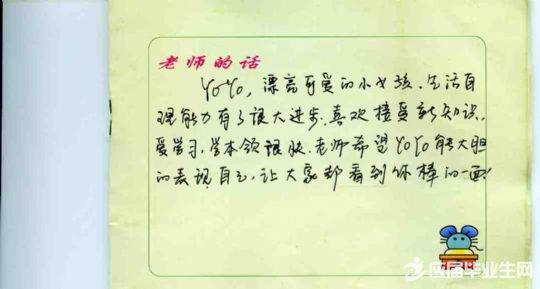 老师的话
YoYo，漂亮可爱的小女孩。生活自
理能力有了很大进步，喜欢接受新知识，
爱学习，学本领很快。老师希望YoYo能大胆
的表现自己，让大家都看到你棒的一面！
应届毕业生网